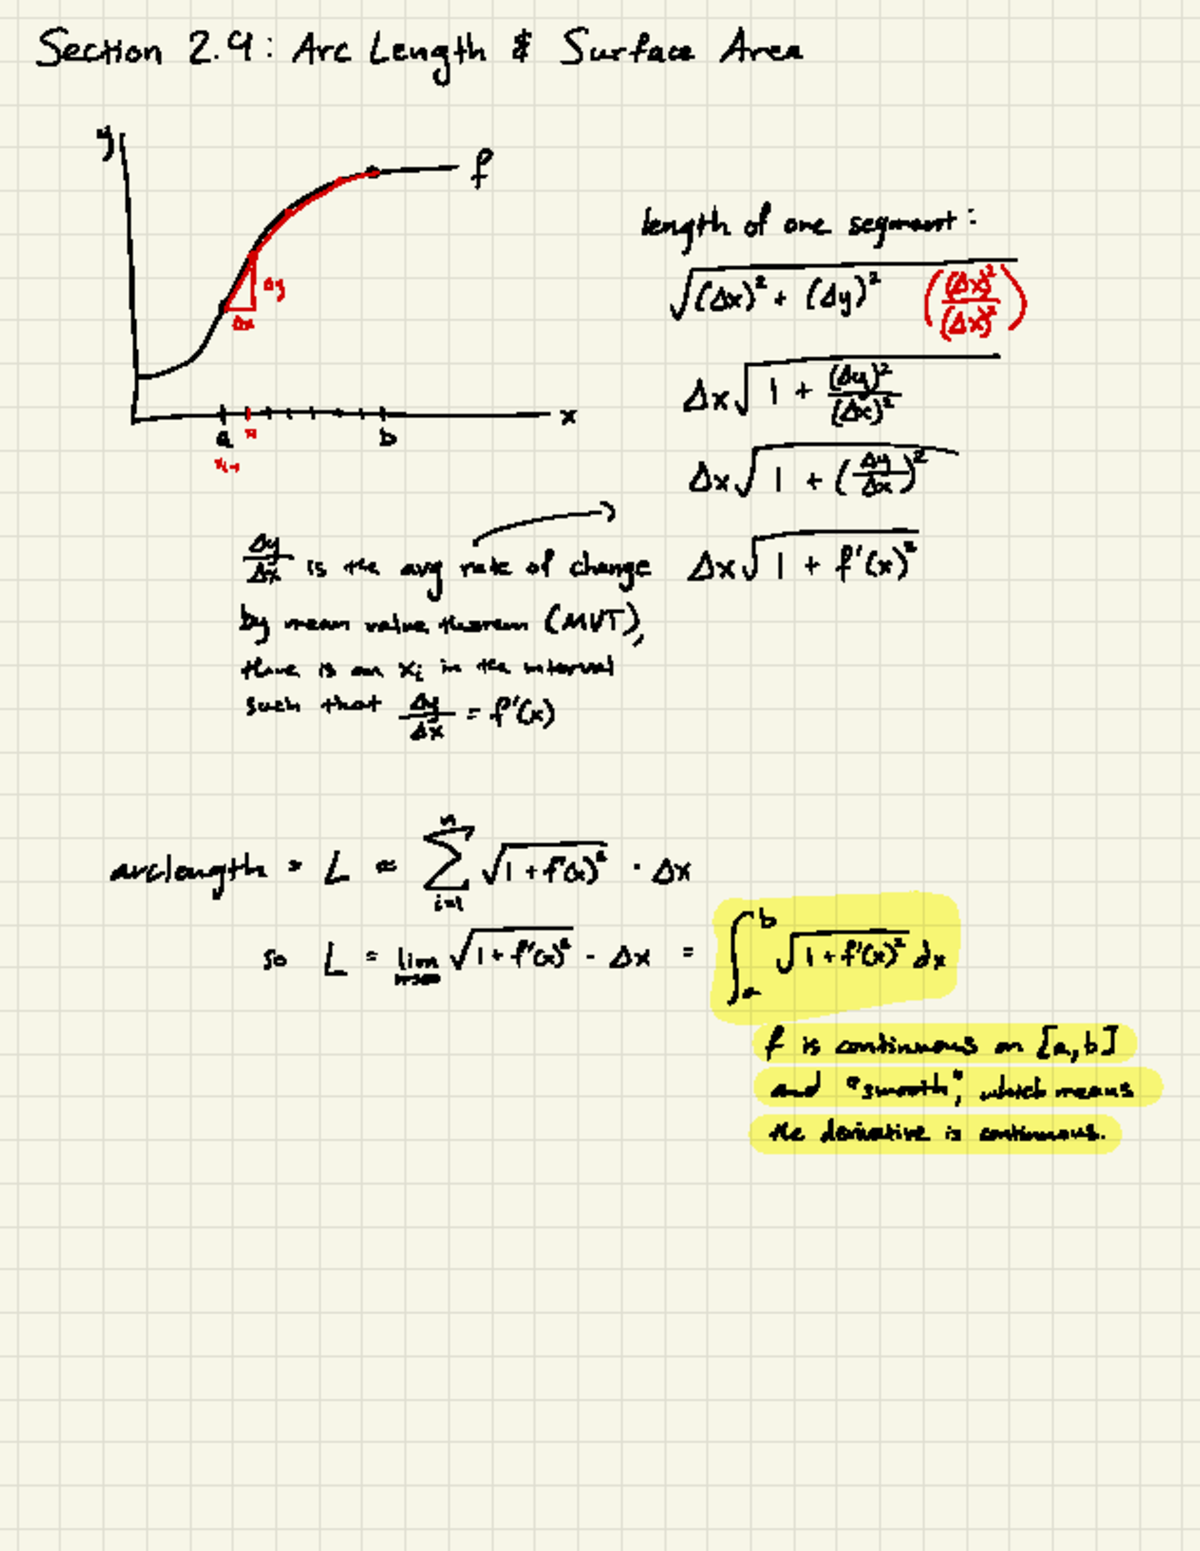 Section 2.4: Arc Length & Surface Area
y
f
Δy
Δx
a
x
b
x
length of one segment:
√(Δx)² + (Δy)² ((Δx)²/(Δx)²)
Δx√1 + (Δy)²/(Δx)²
Δx√1 + (Δy/Δx)²
Δx√1 + f'(x)²
Δy/Δx is the avg rate of change
by mean value theorem (MVT),
there is an xᵢ in the interval
such that Δy/Δx = f'(x)
arclength = L ≈ Σ i=1 n √1 + f'(x)² · Δx
so L = lim n→∞ √1 + f'(x)² · Δx = ∫ a b √1 + f'(x)² dx
f is continuous on [a,b]
and "smooth", which means
the derivative is continuous.